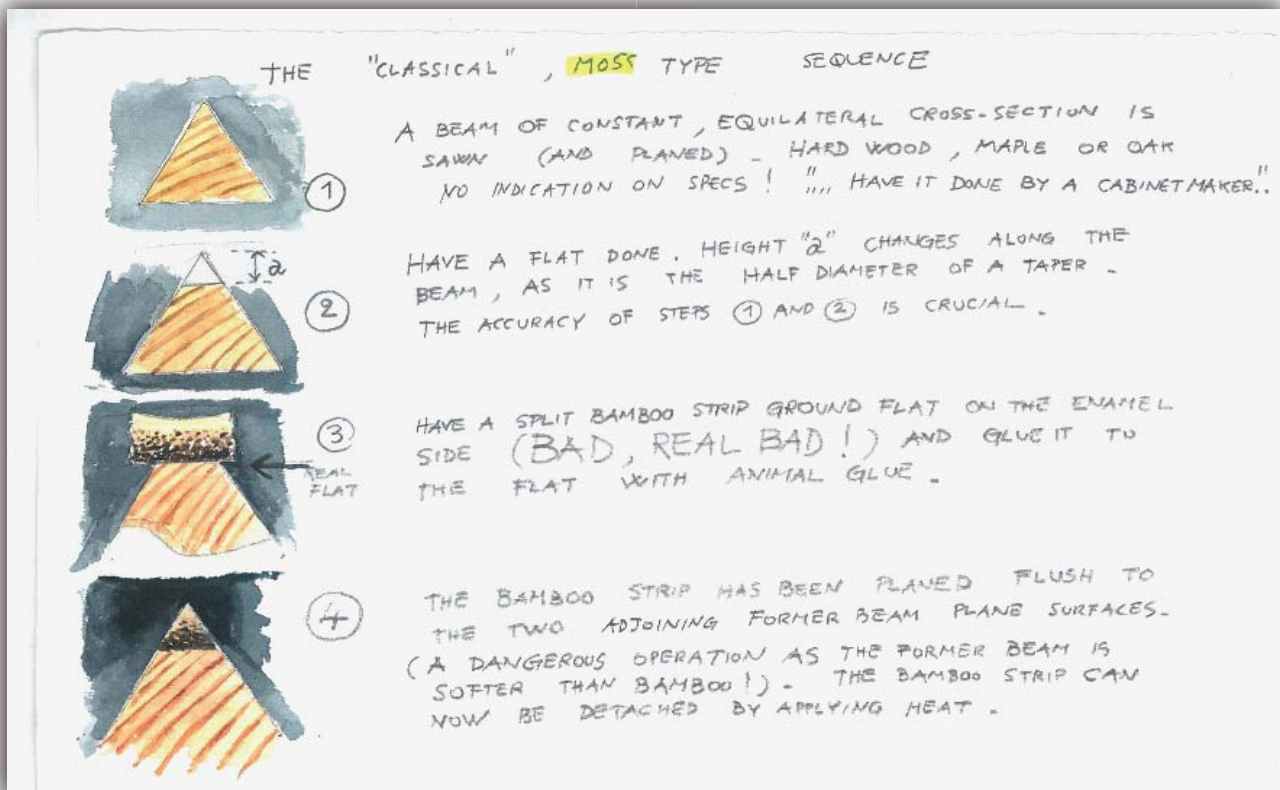 THE "CLASSICAL", MOSS TYPE SEQUENCE
A BEAM OF CONSTANT, EQUILATERAL CROSS-SECTION IS
SAWN (AND PLANED) - HARD WOOD, MAPLE OR OAK
NO INDICATION ON SPECS! ",,, HAVE IT DONE BY A CABINETMAKER.."
1
HAVE A FLAT DONE. HEIGHT "a" CHANGES ALONG THE
BEAM, AS IT IS THE HALF DIAMETER OF A TAPER -
THE ACCURACY OF STEPS 1 AND 2 IS CRUCIAL.
a
2
HAVE A SPLIT BAMBOO STRIP GROUND FLAT ON THE ENAMEL
SIDE (BAD, REAL BAD!) AND GLUE IT TO
THE FLAT WITH ANIMAL GLUE.
3
REAL
FLAT
THE BAMBOO STRIP HAS BEEN PLANED FLUSH TO
THE TWO ADJOINING FORMER BEAM PLANE SURFACES-
(A DANGEROUS OPERATION AS THE FORMER BEAM IS
SOFTER THAN BAMBOO!). THE BAMBOO STRIP CAN
NOW BE DETACHED BY APPLYING HEAT.
4